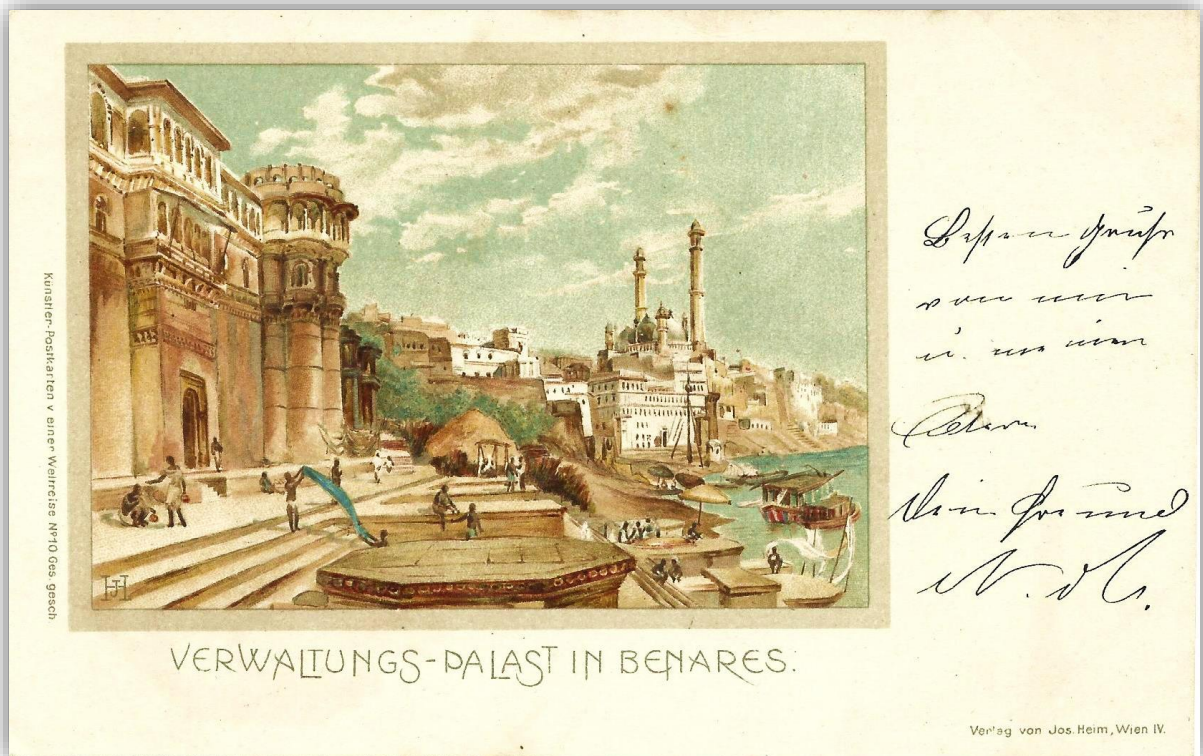 Künstler-Postkarten v einer Weltreise Nº10 Ges. gesch
HJ
VERWALTUNGS-PALAST IN BENARES.
Besten Grüße
von mir
u. meinen
Eltern
Dein Freund
Verlag von Jos. Heim, Wien IV.